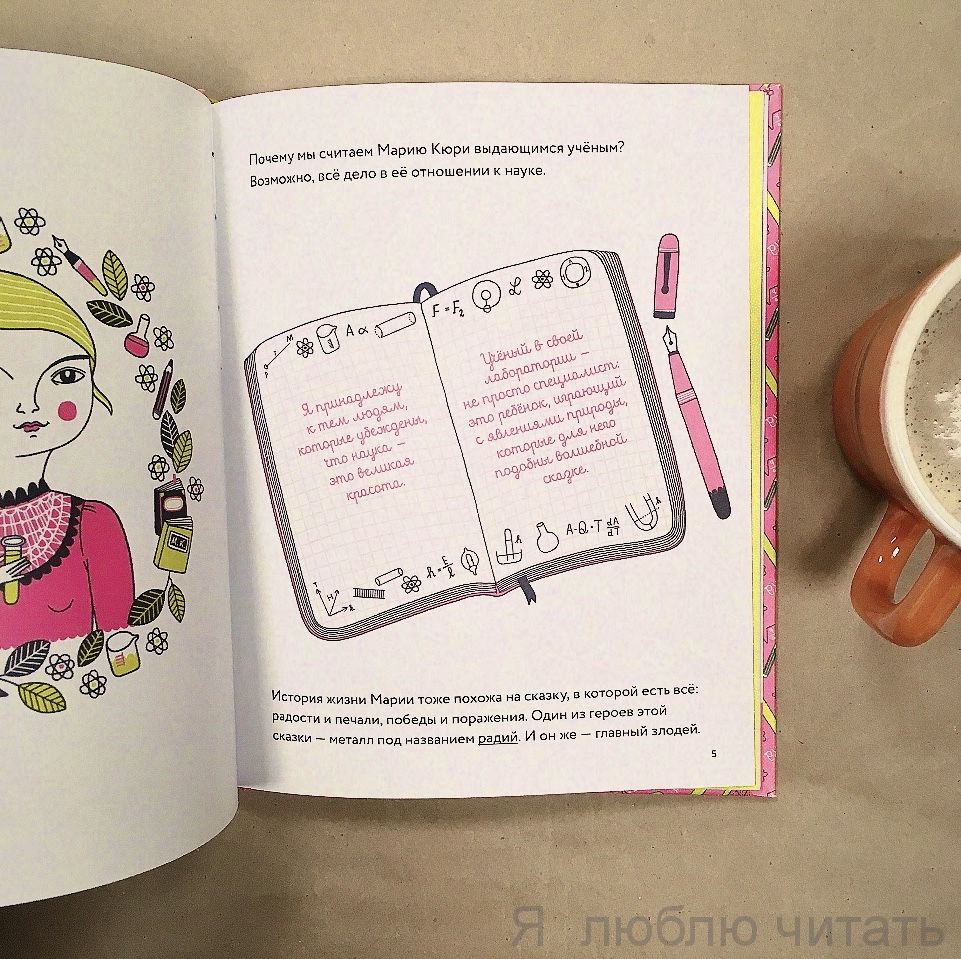 Почему мы считаем Марию Кюри выдающимся учёным?
Возможно, всё дело в её отношении к науке.
M
T
A α
F = F₂
L
Я принадлежу
к тем людям,
которые убеждены,
что наука –
это великая
красота.
Учёный в своей
лаборатории –
не просто специалист:
это ребёнок, играющий
с явлениями природы,
которые для него
подобны волшебной
сказке.
h = E/ℓ
A-Q·T dA/dT
История жизни Марии тоже похожа на сказку, в которой есть всё:
радости и печали, победы и поражения. Один из героев этой
сказки – металл под названием радий. И он же – главный злодей.
5
Я люблю читать